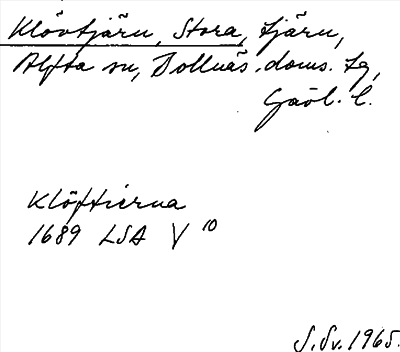 Klövtjärn, Stora, tjärn,
Alfta sn, Bollnäs doms. tg,
Gävl. l.
Klöftierna
1689 LSA V 10
S.Sv. 1965.